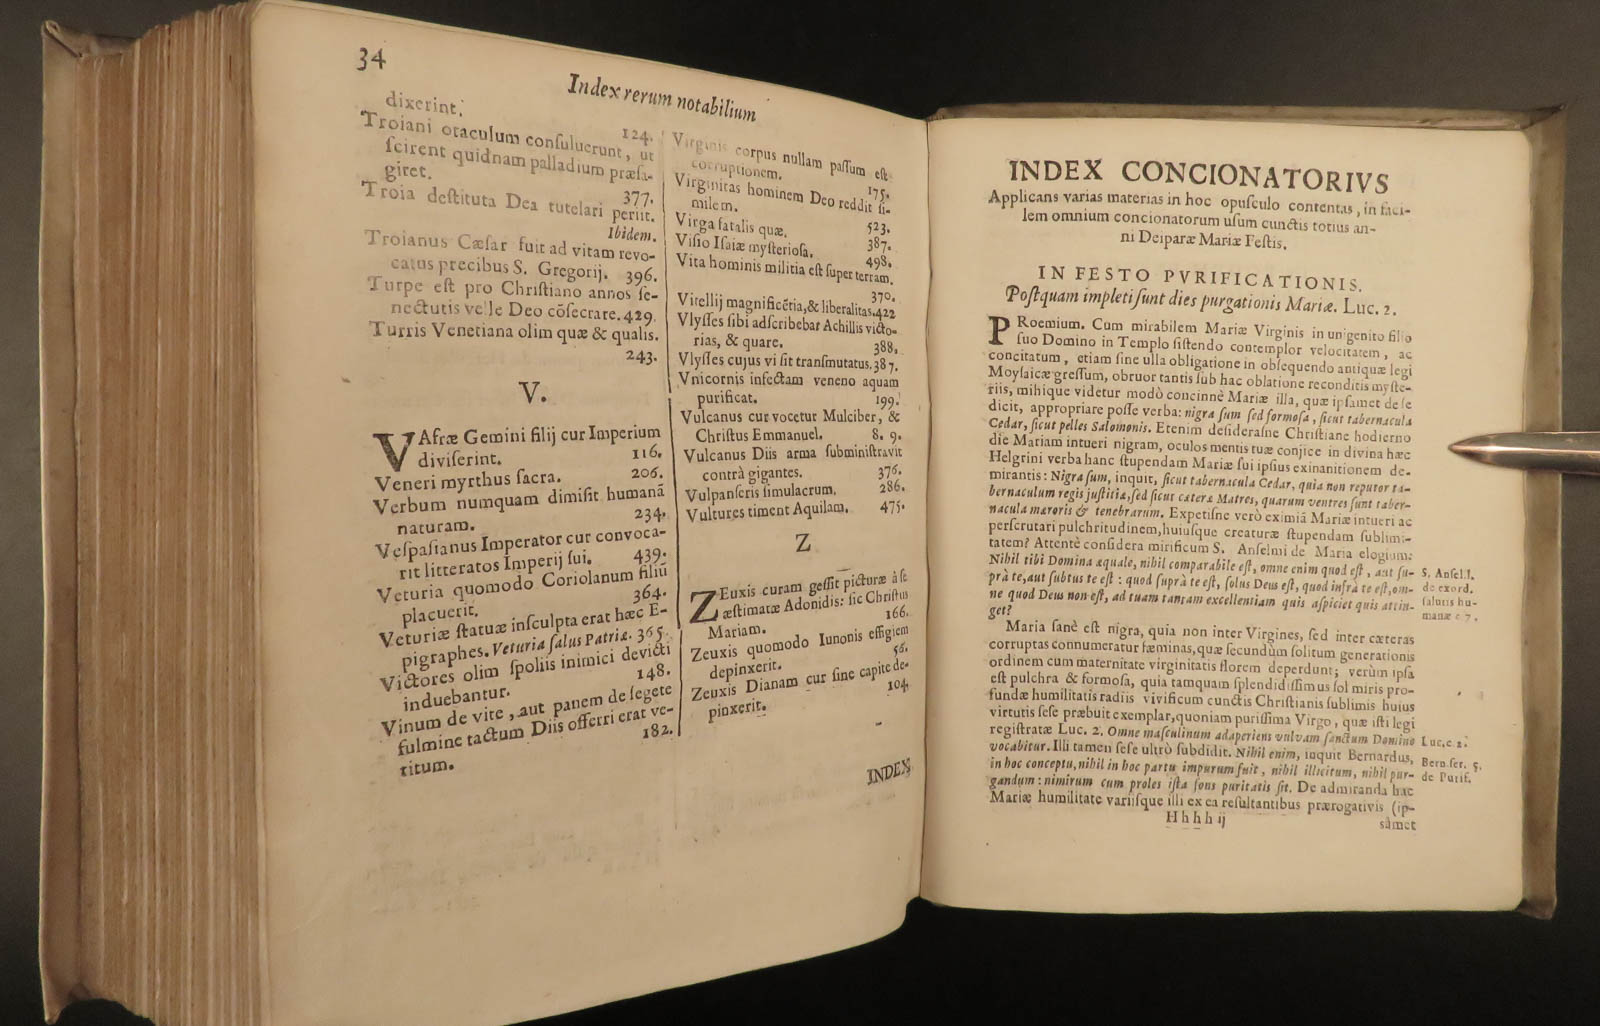 34
Index rerum notabilium
dixerint.
124.
Troiani oraculum conſuluerunt, ut
ſcirent quidnam palladium præſa-
giret.
377.
Troia deſtituta Dea tutelari periit.
Ibidem.
Troianus Cæſar fuit ad vitam revo-
catus precibus S. Gregorij. 396.
Turpe eſt pro Chriſtiano annos ſe-
nectutis velle Deo cōſecrare. 429.
Turris Venetiana olim quæ & qualis.
243.
V.
VAfræ Gemini filij cur Imperium
diviſerint. 116.
Veneri myrthus ſacra. 206.
Verbum numquam dimiſit humanā
naturam. 234.
Veſpaſianus Imperator cur convoca-
rit litteratos Imperij ſui. 439.
Veturia quomodo Coriolanum filiū
placuerit. 364.
Veturiæ ſtatuæ inſculpta erat hæc E-
pigraphes. Veturia ſalus Patriæ. 365.
Victores olim ſpoliis inimici devicti
induebantur. 148.
Vinum de vite, aut panem de ſegete
fulmine tactum Diis offerri erat ve-
titum. 182.
Virginis corpus nullam paſſum eſt
corruptionem. 175.
Virginitas hominem Deo reddit ſi-
milem. 523.
Virga fatalis quæ. 387.
Viſio Iſaiæ myſterioſa. 498.
Vita hominis militia eſt ſuper terram.
370.
Vitellij magnificētia, & liberalitas. 422
Vlyſſes ſibi adſcribebat Achillis victo-
rias, & quare. 388.
Vlyſſes cujus vi ſit tranſmutatus. 387.
Vnicornis infectam veneno aquam
purificat. 199.
Vulcanus cur vocetur Mulciber, &
Chriſtus Emmanuel. 8. 9.
Vulcanus Diis arma ſubminiſtravit
contrà gigantes. 376.
Vulpanſeris ſimulacrum. 286.
Vultures timent Aquilam. 475.
Z
ZEuxis curam geſſit picturæ à ſe
æſtimatæ Adonidis: ſic Chriſtus
Mariam. 166.
Zeuxis quomodo Iunonis effigiem
depinxerit. 56.
Zeuxis Dianam cur ſine capite de-
pinxerit. 104.
INDEX
INDEX CONCIONATORIVS
Applicans varias materias in hoc opuſculo contentas, in faci-
lem omnium concionatorum uſum cunctis totius an-
ni Deiparæ Mariæ Feſtis.
IN FESTO PVRIFICATIONIS.
Poſtquam impleti ſunt dies purgationis Mariæ. Luc. 2.
PRoemium. Cum mirabilem Mariæ Virginis in unigenito filio
ſuo Domino in Templo ſiſtendo contemplor velocitatem, ac
concitatum, etiam ſine ulla obligatione in obſequendo antiquæ legi
Moyſaicæ greſſum, obruor tantis ſub hac oblatione reconditis myſte-
riis, mihique videtur modò concinnè Mariæ illa, quæ ipſamet de ſe
dicit, appropriare poſſe verba: nigra ſum ſed formoſa, ſicut tabernacula
Cedar, ſicut pelles Salomonis. Etenim deſideraſne Chriſtiane hodierno
die Mariam intueri nigram, oculos mentis tuæ conjice in divina hæc
Helgrini verba hanc ſtupendam Mariæ ſui ipſius exinanitionem de-
mirantis: Nigra ſum, inquit, ſicut tabernacula Cedar, quia non reputor ta-
bernaculum regis juſtitiæ, ſed ſicut cæteræ Matres, quarum ventres ſunt taber-
nacula mæroris & tenebrarum. Expetiſne verò eximiā Mariæ intueri ac
perſcrutari pulchritudinem, huiuſque creaturæ ſtupendam ſublimi-
tatem? Attentè conſidera mirificum S. Anſelmi de Maria elogium:
Nihil tibi Domina æquale, nihil comparabile eſt, omne enim quod eſt, aut ſu-
prà te, aut ſubtus te eſt: quod ſuprà te eſt, ſolus Deus eſt, quod infrà te eſt, om-
ne quod Deus non eſt, ad tuam tantam excellentiam quis aſpiciet quis attin-
get?
S. Anſel. l.
de exord.
ſalutis hu-
manæ c 7.
Maria ſanè eſt nigra, quia non inter Virgines, ſed inter cæteras
corruptas connumeratur fæminas, quæ ſecundùm ſolitum generationis
ordinem cum maternitate virginitatis florem deperdunt; verùm ipſa
eſt pulchra & formoſa, quia tamquam ſplendidiſſimus ſol miris pro-
fundæ humilitatis radiis vivificum cunctis Chriſtianis ſublimis huius
virtutis ſeſe præbuit exemplar, quoniam puriſſima Virgo, quæ iſti legi
regiſtratæ Luc. 2. Omne maſculinum adaperiens vulvam ſanctum Domino
vocabitur. Illi tamen ſeſe ultrò ſubdidit. Nihil enim, inquit Bernardus,
in hoc conceptu, nihil in hoc partu impurum fuit, nihil illicitum, nihil pur-
gandum: nimirum cum proles iſta fons puritatis ſit. De admiranda hac
Mariæ humilitate variiſque illi ex ea reſultantibus prærogativis (ip-
Luc. c 2.
Bern ſer. 5.
de Purif.
Hhhh ij
ſàmet